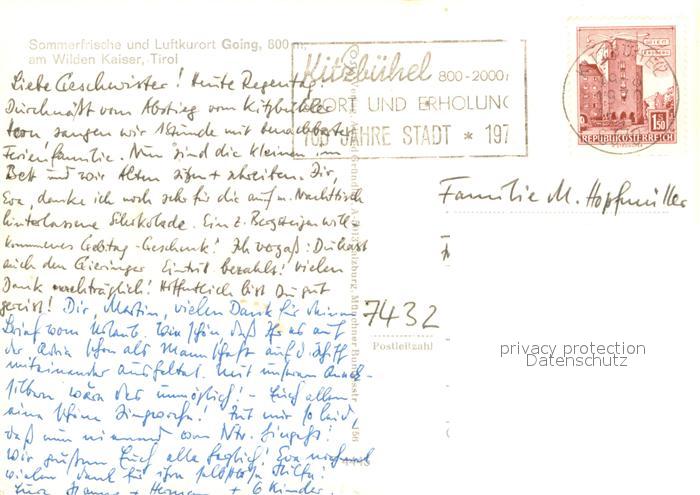 Sommerfrische und Luftkurort Going, 800 m,
am Wilden Kaiser, Tirol
Kitzbühel 800-2000
SPORT UND ERHOLUNG
700 JAHRE STADT * 197
WIEN
1.50
REPUBLIK ÖSTERREICH
Liebe Geschwister! Heute Regentag.
Durchnäßt vom Abstieg vom Kitzbühler
Horn sangen wir 1 Stunde mit benachbarter
Ferienfamilie. Nun sind die kleinen im
Bett und wir Alten sitzen + schreiben. Dir,
Eva, danke ich noch sehr für die auf m. Nachttisch
hinterlassene Schokolade. Ein z. Bergsteigen will-
kommenes Gebtag-Geschenk! Ich vergaß: Du hast
auch den Gieringer Eintritt bezahlt! Vielen
Dank nachträglich! Hoffentlich bist Du gut
gereist! Dir, Martin, vielen Dank für deinen
Brief vom Urlaub. Wie schön daß Ihr es auf
der Adria schon als Mannschaft auf d. Schiff
miteinander aushaltet. Mit unseren
wäre das unmöglich! - Euch allen
eine schöne Singwoche! Tut mir so leid,
daß nun niemand von Ntr. hingeht!
Wir grüßen Euch alle herzlich! Eva nochmal
vielen Dank für ihre selbstlose Hilfe!
Eure Hanna + Hermann + 6 Kinder.
Familie M. Hopfmüller
7432
Postleitzahl
privacy protection
Datenschutz